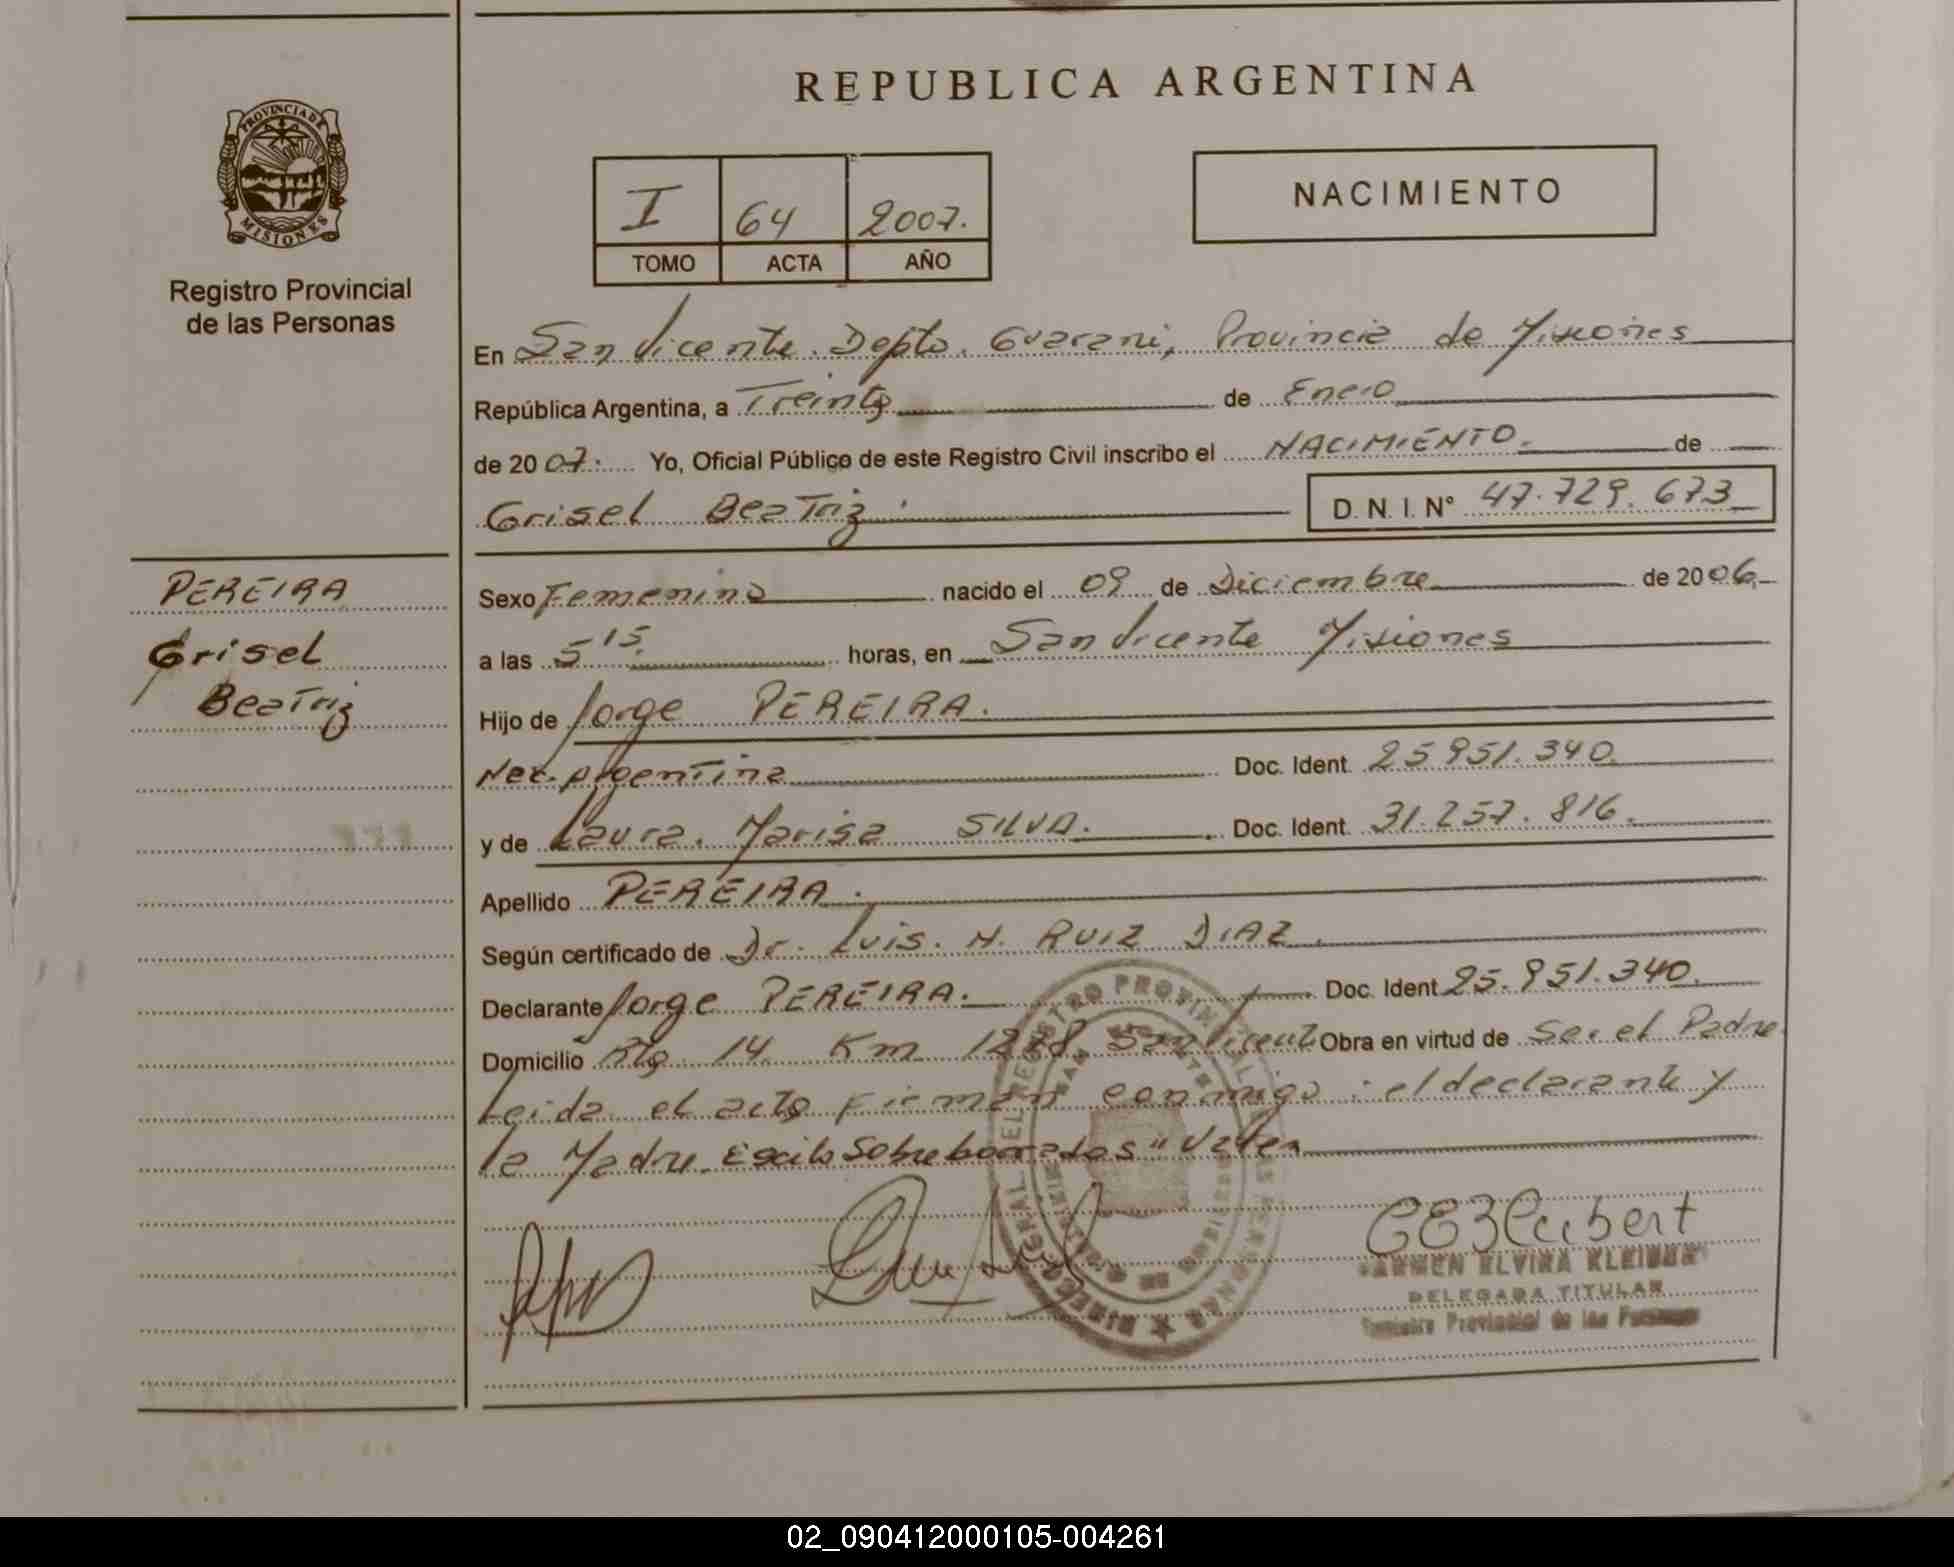 REPUBLICA ARGENTINA
PROVINCIA DE
MISIONES
Registro Provincial
de las Personas
I 64 2007.
TOMO ACTA AÑO
NACIMIENTO
En San Vicente. Depto. Guarani, Provincia de Misiones
República Argentina, a Treinta de Enero
de 2007. Yo, Oficial Público de este Registro Civil inscribo el NACIMIENTO. de
Grisel Beatriz. D. N. I. N° 47.729.673
PEREIRA
Grisel
Beatriz
Sexo Femenino nacido el 09 de Diciembre de 2006.
a las 5 15. horas, en San Vicente Misiones
Hijo de Jorge PEREIRA.
Nac. Argentina Doc. Ident. 25.951.340.
y de Laura. Marisa SILVA. Doc. Ident. 31.257.816.
Apellido PEREIRA.
Según certificado de Dr. Luis. N. RUIZ DIAZ.
Declarante Jorge PEREIRA. Doc. Ident. 25.951.340.
Domicilio Rta. 14 Km 1278 San Vicente Obra en virtud de Ser el Padre
Leida el acta firman conmigo: el declarante y
la Madre. Escito Sobre borrados" Valen
CARMEN ELVIRA KLEIBERT
DELEGADA TITULAR
Registro Provincial de las Personas
02_090412000105-004261